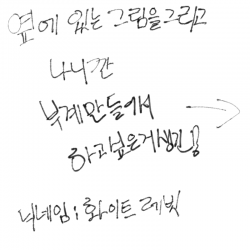 옆에 있는 그림을그리고
나니깐
부계만들어서
하고싶은게생긴당
닉네임: 화이트 레빗